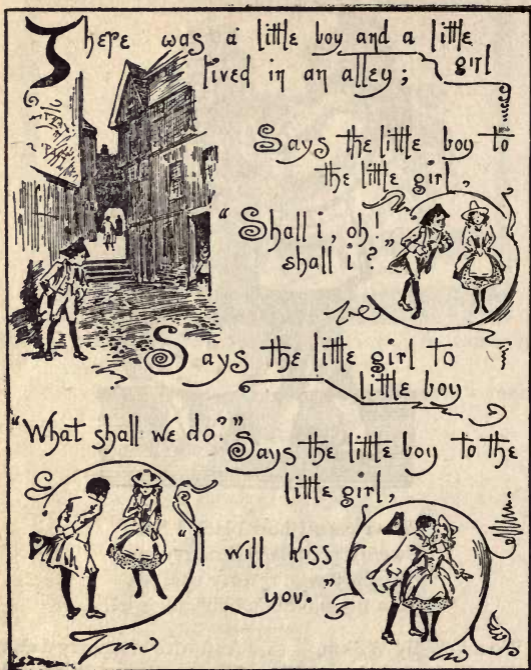 There was a little boy and a little girl
lived in an alley;
Says the little boy to
the little girl,
"Shall i, oh!
shall i?"
Says the little girl to
little boy
"What shall we do?"
Says the little boy to the
little girl,
"I will kiss
you."